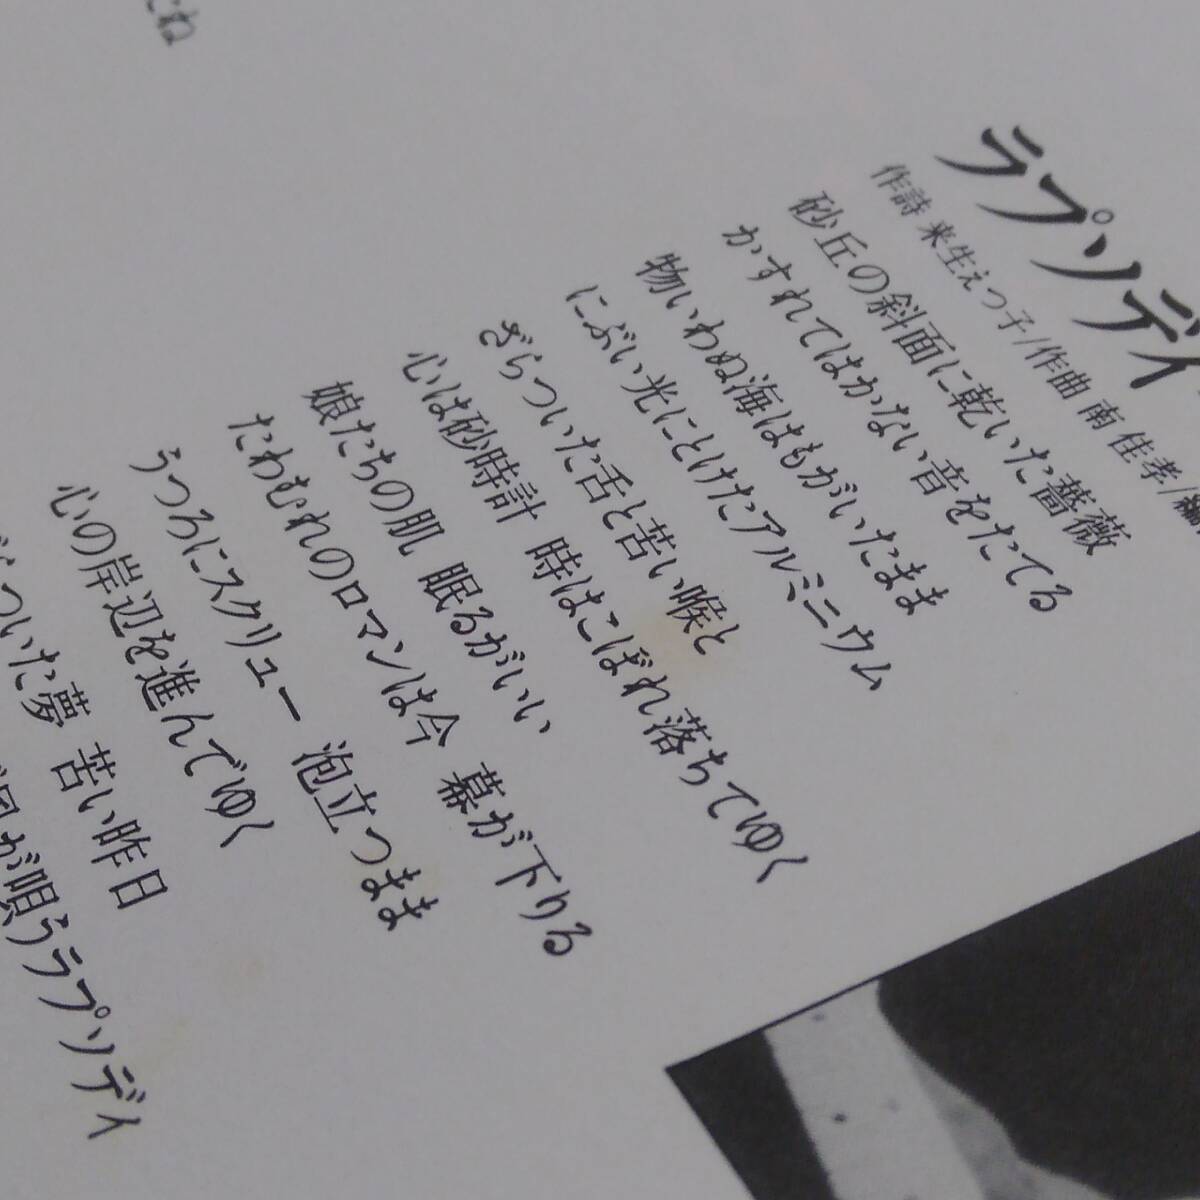 ラプソディ
作詩 来生えつ子/作曲 南 佳孝/編
砂丘の斜面に乾いた薔薇
かすれてはかない音をたてる
物いわぬ海はもがいたまま
にぶい光にとけたアルミニウム
ざらついた舌と苦い喉と
心は砂時計 時はこぼれ落ちてゆく
娘たちの肌 眠るがいい
たわむれのロマンは今 幕が下りる
うつろにスクリュー 泡立つまま
心の岸辺を進んでゆく
ついた夢 苦い昨日
が唄うラプソディ
ね